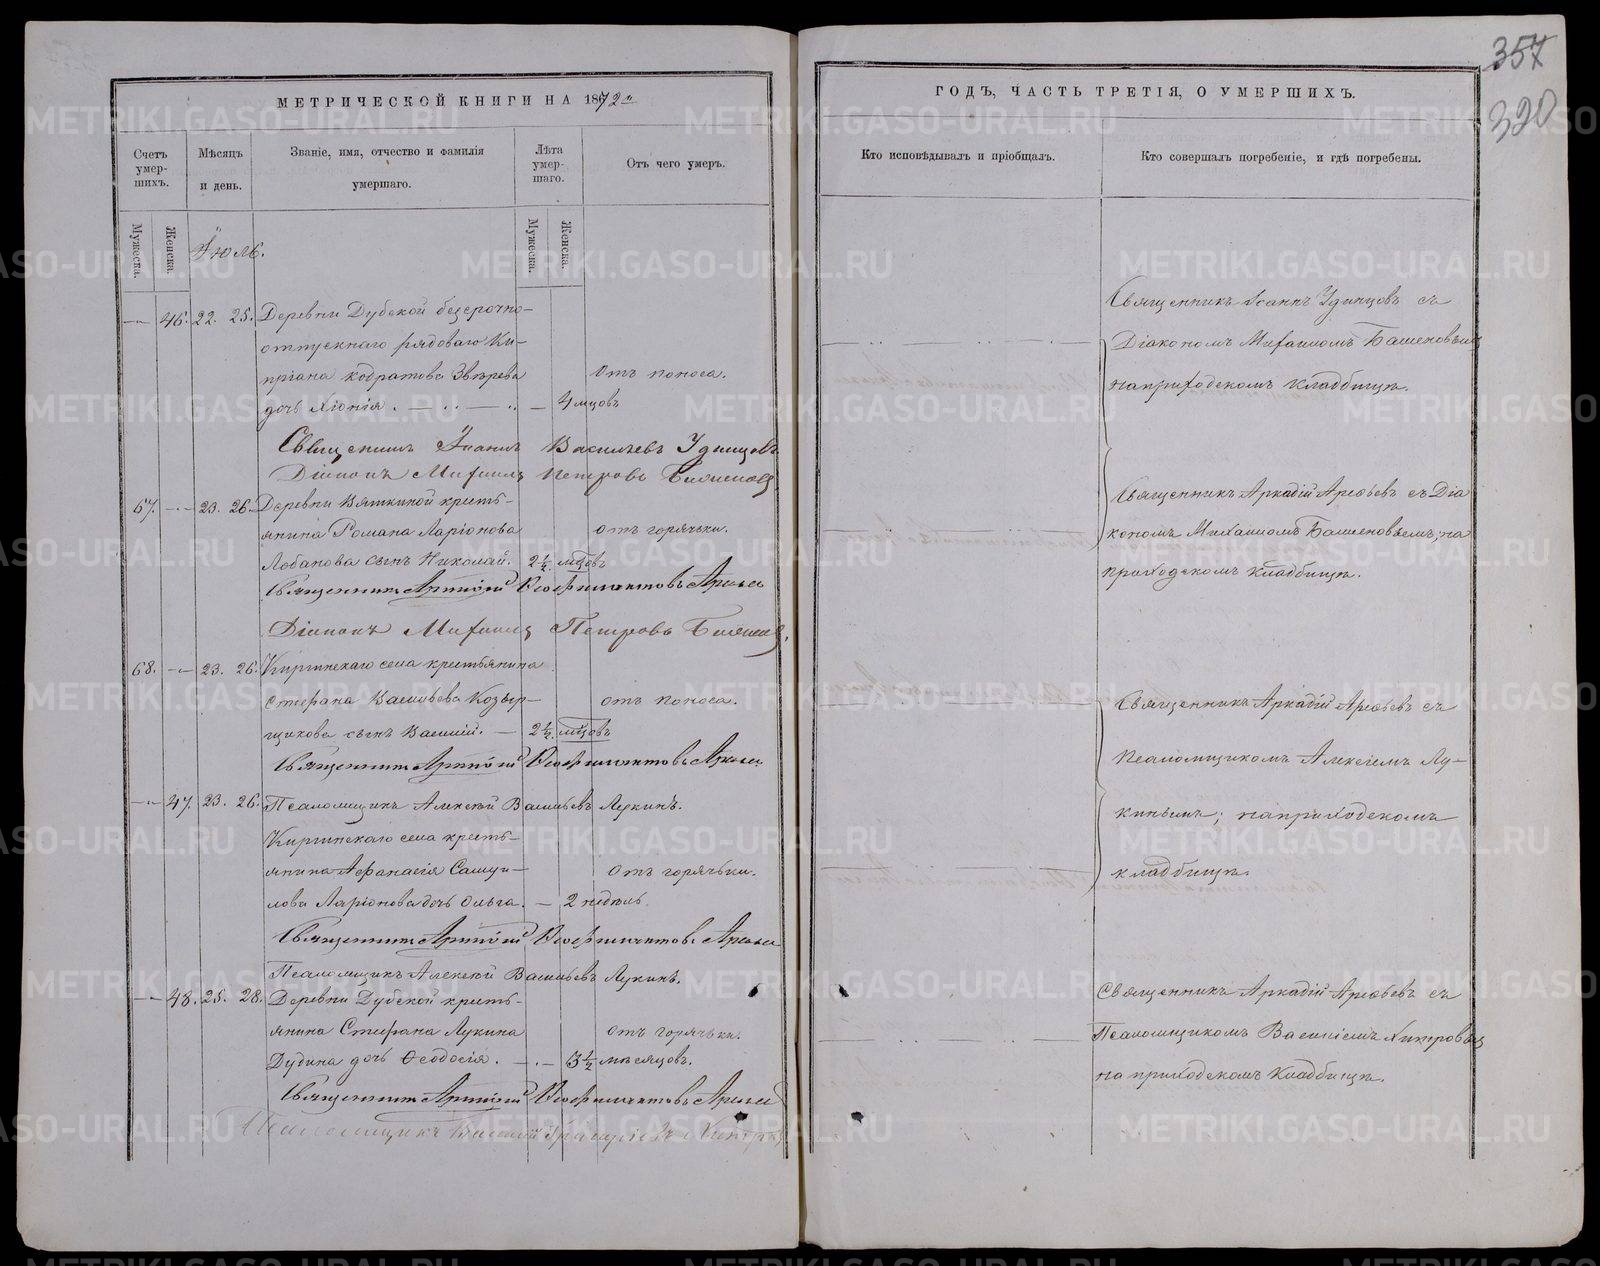 357
320
МЕТРИЧЕСКОЙ КНИГИ НА 1872й
Счетъ умерших. Мѣсяцъ и день. Званіе, имя, отчество и фамилія умершаго. Лѣта умершаго. Отъ чего умеръ.
Мужеска. Женска. Мужеска. Женска.
Іюль.
46. 22. 25. Деревни Дубской безсрочно-
отпускнаго рядоваго Ки-
пріана Кодратова Звѣрева отъ поноса.
дочь Хіонія. 4 мцовъ
Священникъ Іоаннъ Васильевъ Удинцовъ
Діаконъ Михаилъ Петровъ
67. 23. 26. Деревни Вяткиной кресть-
янина Романа Ларіонова отъ горячки.
Лобанова сынъ Николай. 2½ мцовъ
Священникъ Аркадій Арефьев
Діаконъ Михаилъ Петровъ
68. 23. 26. Киргинскаго села крестьянина
Стефана Васильева Козыр- отъ поноса.
щикова сынъ Василій. 2½ мцовъ
Священникъ Аркадій
47. 23. 26. Псаломщикъ Алексѣй Васильевъ Лукинъ.
Киргинскаго села кресть-
янина Афанасія Самуи- отъ горячки.
лова Ларіонова дочь Ольга. 2 недѣль.
Священникъ Аркадій
Псаломщикъ Алексѣй Васильевъ Лукинъ.
48. 25. 28. Деревни Дубской кресть-
янина Стефана Лукина отъ горячки.
Дудина дочь Ѳеодосія. 3½ мѣсяцовъ.
Священникъ Аркадій
Псаломщикъ Василій
ГОДЪ, ЧАСТЬ ТРЕТІЯ, О УМЕРШИХЪ.
Кто исповѣдывалъ и пріобщалъ. Кто совершалъ погребеніе, и гдѣ погребены.
Священникъ Іоаннъ Удинцовъ съ
Діакономъ Михаиломъ Башеновымъ
на приходскомъ кладбищѣ.
Священникъ Аркадій Арефьевъ съ Діа
кономъ Михаиломъ Башеновымъ, на
приходскомъ кладбищѣ.
Священникъ Аркадій Арефьевъ съ
Псаломщикомъ Алексіемъ Лу-
кинымъ; на приходскомъ
кладбищѣ.
Священникъ Аркадій Арефьевъ съ
Псаломщикомъ Василіемъ Хитровымъ
на приходскомъ кладбищѣ.
METRIKI.GASO-URAL.RU